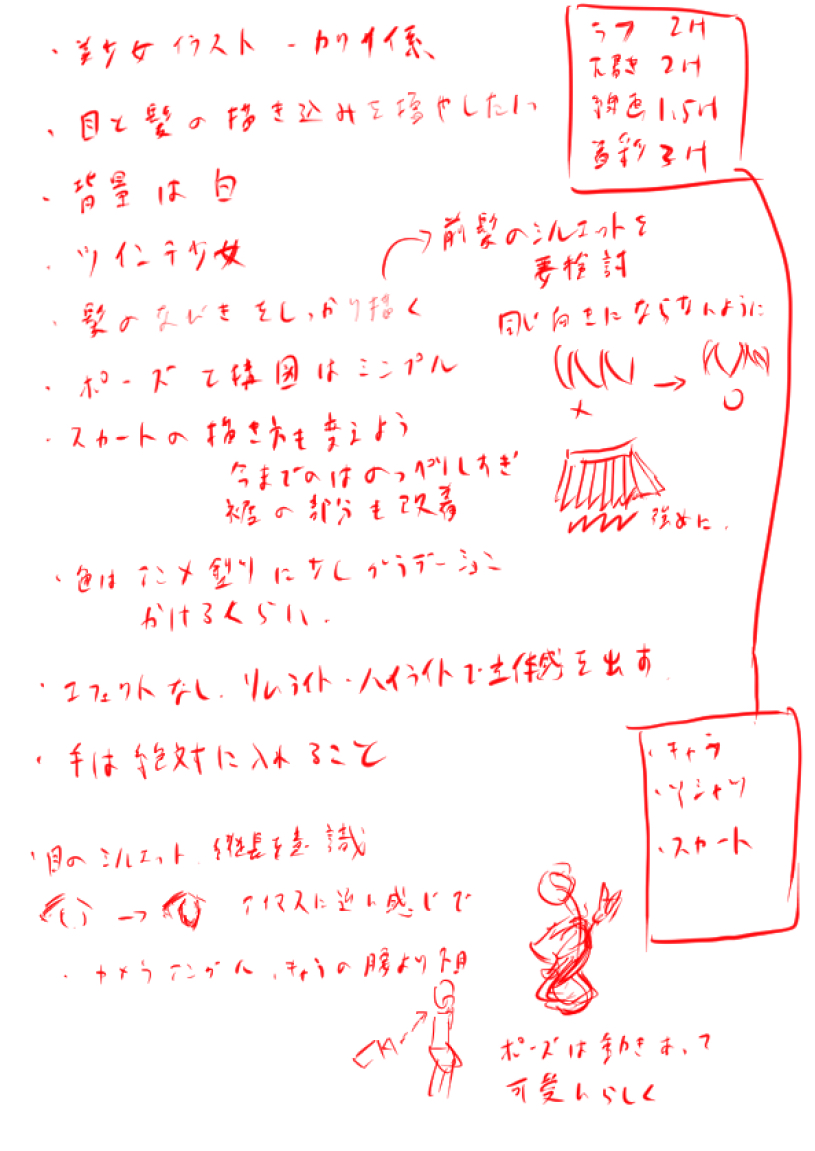 ・美少女イラスト - カワイイ系
・目と髪の描き込みを増やしたい
・背景は白
・ツインテ少女
・髪のなびきをしっかり描く
→前髪のシルエットを
要検討
同じ向きにならないように
× → ○
・ポーズと構図はシンプル
・スカートの描き方も変えよう
今までのはのっぺりしすぎ
裾の部分も改善
強めに.
・色はアニメ塗りに少しグラデーション
かけるくらい.
・エフェクトなし. リムライト・ハイライトで立体感を出す.
・手は絶対に入れること
・目のシルエット. 縦長を意識
→ アイマスに近い感じで
・カメラアングル、きゃらの腰より下目
ポーズは動きあって
可愛いらしく
ラフ 2H
下書き 2H
線画 1.5H
着彩 3H
・キャラ
・Yシャツ
・スカート